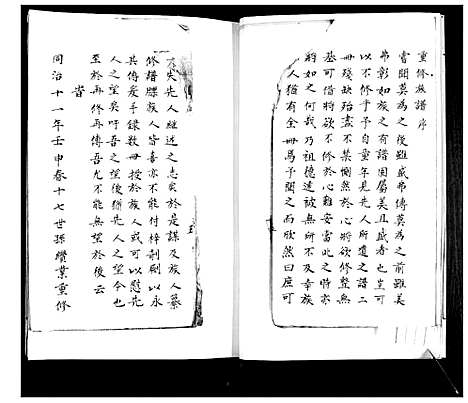 重修族譜序
嘗聞莫為之後雖盛弗傳莫為之前雖美
弗彰如族之有譜固屬美且盛者也豈可
以不修乎予自童年見先人所遺之譜二
冊殘缺殆盡不禁惻然於心將欲修整無
基可借將欲不修於心難安當此之時家
韵如之何哉乃祖德遠被無所不及幸族
人猶有全冊焉予聞之而欣然曰庶可
不失先人繼述之志矣於是謀及族人纂
修譜牒族人皆喜亦不能付梓剞劂以永
其傳爰手錄數冊授於族人或可以慰先
人之望矣吁吾之望後猶先人之望今也
至於再修再傳吾尤不能無望於後云
旹
同治十一年壬申春十七世孫纘業重修